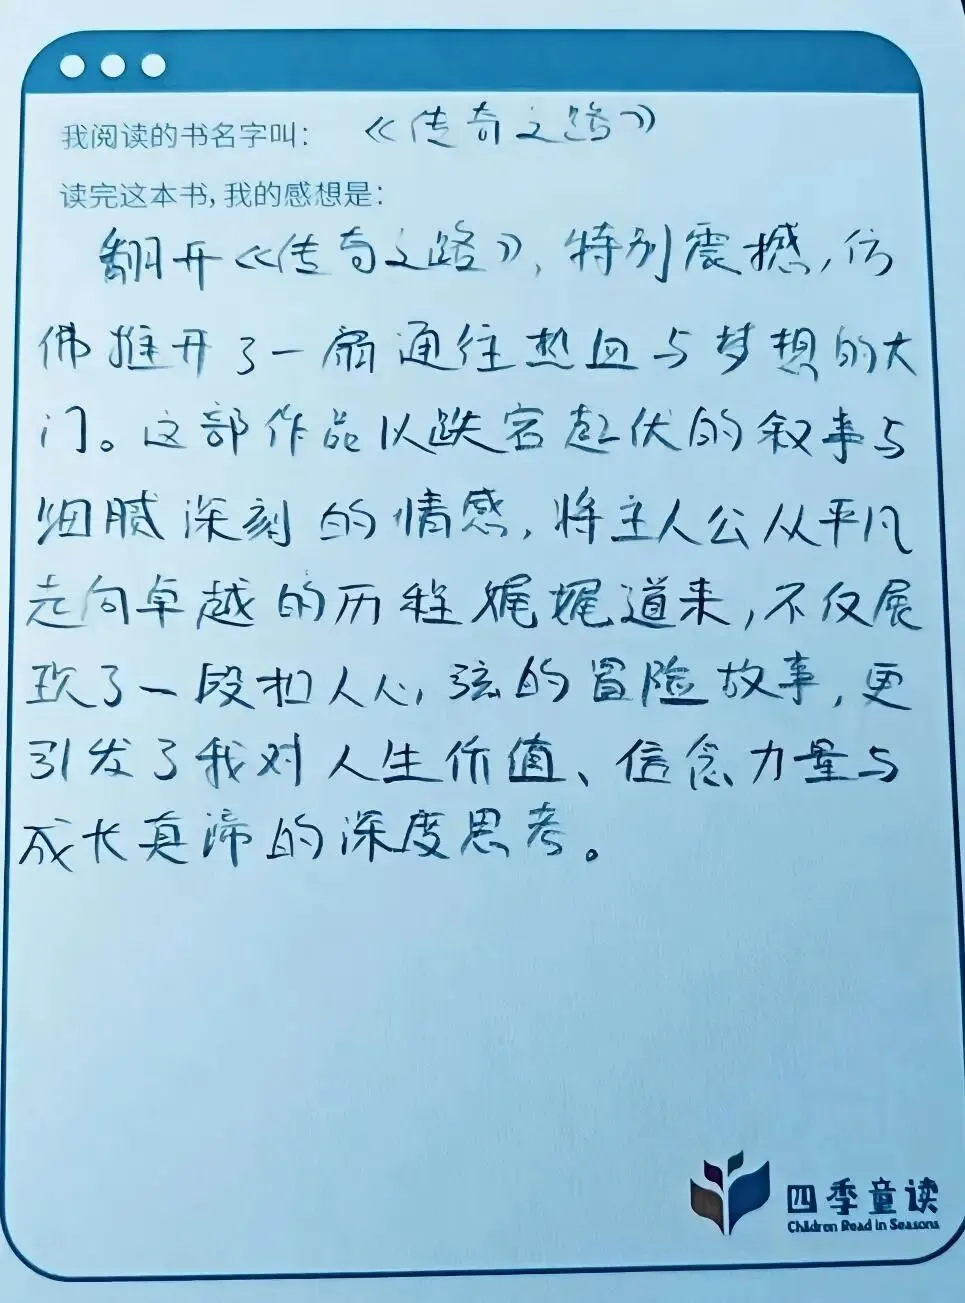 我阅读的书名字叫: 《传奇之路》
读完这本书, 我的感想是:
翻开《传奇之路》, 特别震撼, 仿
佛推开了一扇通往热血与梦想的大
门。这部作品以跌宕起伏的叙事与
细腻深刻的情感, 将主人公从平凡
走向卓越的历程娓娓道来, 不仅展
现了一段扣人心弦的冒险故事, 更
引发了我对人生价值、信念力量与
成长真谛的深度思考。
四季童读
Children Read in Seasons